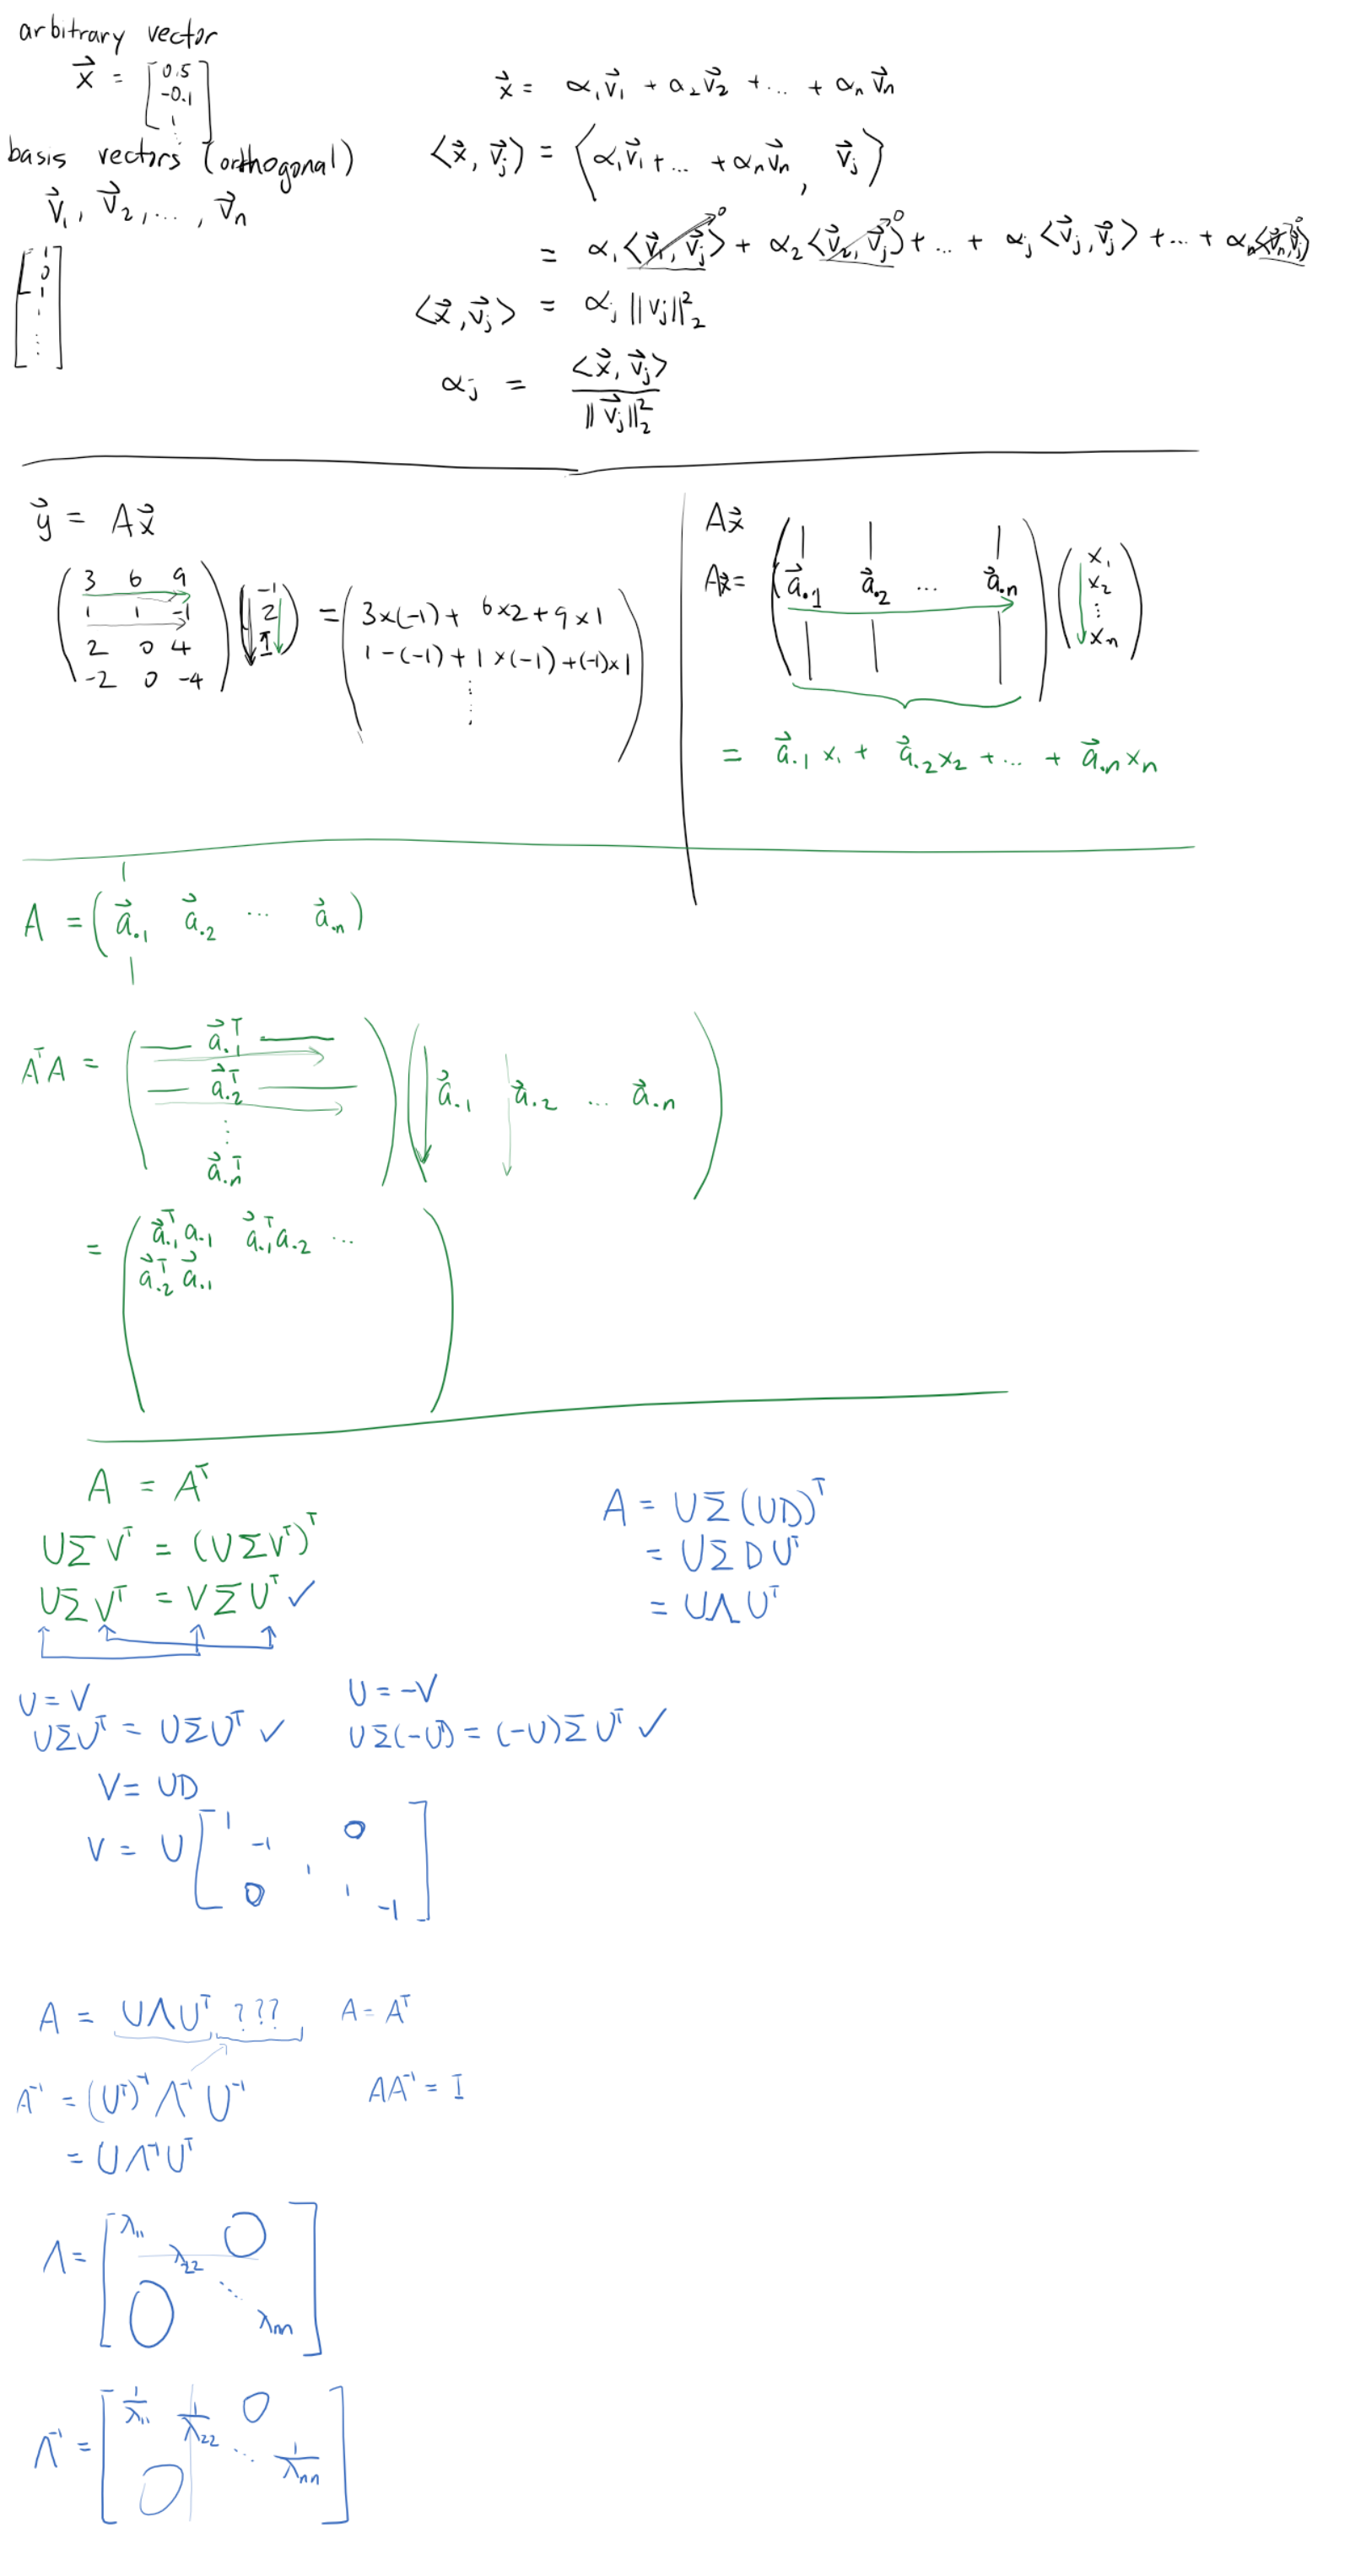 arbitrary vector
x⃗ = [0.5 -0.1 1 ⋮]
basis vectors (orthogonal)
v⃗₁, v⃗₂, ..., v⃗n
[1 0 1 ⋮]
x⃗ = α₁v⃗₁ + α₂v⃗₂ + ... + αn v⃗n
⟨x⃗, v⃗j⟩ = ⟨α₁v⃗₁ + ... + αnv⃗n, v⃗j⟩
= α₁⟨v⃗₁, v⃗j⟩⁰ + α₂⟨v⃗₂, v⃗j⟩⁰ + ... + αj⟨v⃗j, v⃗j⟩ + ... + αn⟨v⃗n, v⃗j⟩⁰
⟨x⃗, v⃗j⟩ = αj ||vj||₂²
αj = ⟨x⃗, v⃗j⟩ / ||v⃗j||₂²
y⃗ = Ax⃗
(3 6 9
1 1 -1
2 0 4
-2 0 -4) (-1 2 1) = (3×(-1) + 6×2 + 9×1
1-(-1) + 1×(-1) + (-1)×1
⋮)
Ax⃗
Ax⃗ = (a⃗.1 a⃗.2 ... a⃗.n) (x₁ x₂ ⋮ xn)
= a⃗.1 x₁ + a⃗.2 x₂ + ... + a⃗.n xn
A = (a⃗.1 a⃗.2 ... a⃗.n)
AᵀA = (a⃗.1ᵀ a⃗.2ᵀ ⋮ a⃗.nᵀ) (a⃗.1 a⃗.2 ... a⃗.n)
= (a⃗.1ᵀa.1 a⃗.1ᵀa.2 ...
a⃗.2ᵀa⃗.1)
A = Aᵀ
UΣVᵀ = (UΣVᵀ)ᵀ
UΣVᵀ = VΣUᵀ ✓
A = UΣ(UD)ᵀ
= UΣDUᵀ
= UΛUᵀ
U = V
UΣUᵀ = UΣUᵀ ✓
U = -V
UΣ(-Uᵀ) = (-U)ΣUᵀ ✓
V = UD
V = U [1 -1 0 1 0 1 -1]
A = UΛUᵀ ??? A = Aᵀ
A⁻¹ = (Uᵀ)⁻¹Λ⁻¹U⁻¹ AA⁻¹ = I
= UΛ⁻¹Uᵀ
Λ = [λ₁₁ λ₂₂ 0 0 ⋱ λnn]
Λ⁻¹ = [1/λ₁₁ 1/λ₂₂ 0 0 ⋱ 1/λnn]